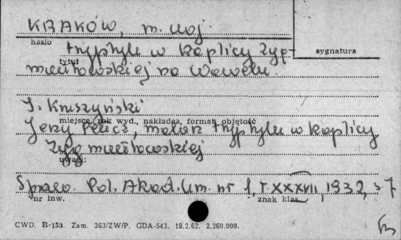 KRAKÓW, m. woj.
hasło
tryptyk w kaplicy Zyg-
sygnatura
tytuł
muntowskiej na Wawelu.
T. Kruszyński
miejsce, rok wyd., nakładca, format, objętość
Jerzy Pencz, malarz tryptyku w kaplicy
Zygmuntowskiej
uwagi:
Spraw. Pol. Akad. Um. nr 1, T. XXXVII, 1932, s 7
nr inw.
znak klas.
CWD. B-15a. Zam. 363/ZW/P. GDA-543. 19.2.62. 2.260.000.